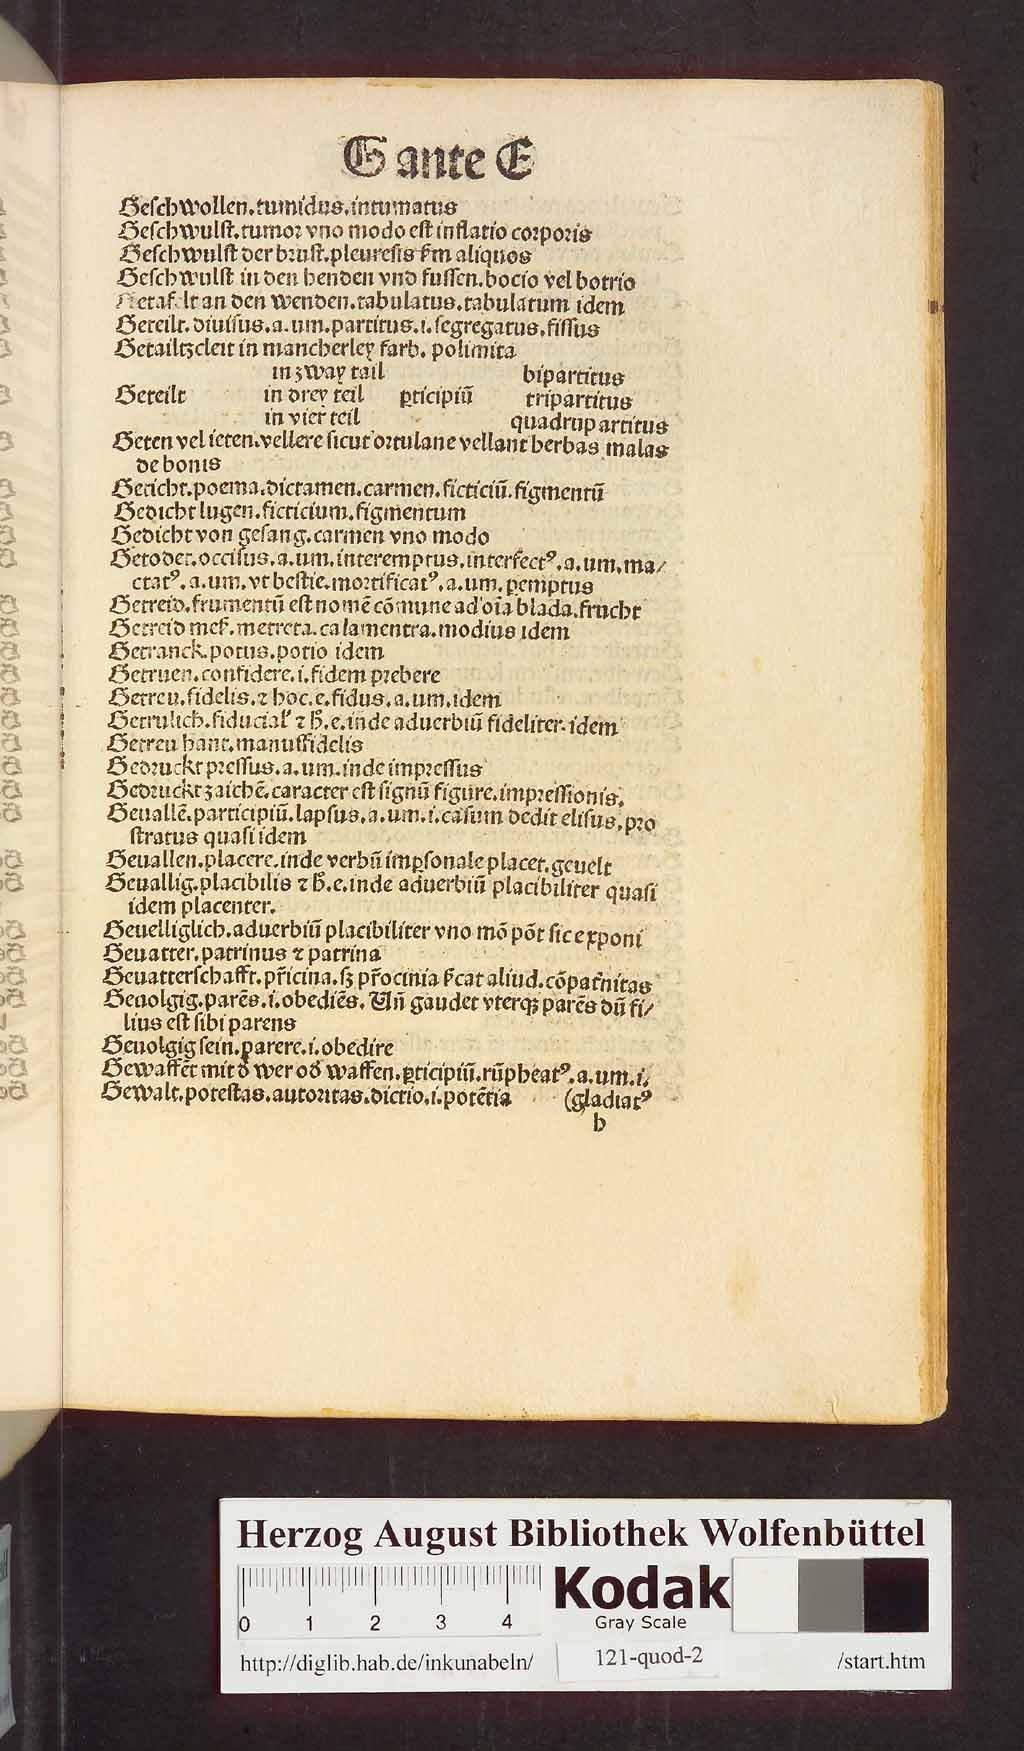 G ante E
Geschwollen.tumidus.intumatus
Geschwulst.tumor vno modo est inflatio corporis
Geschwulst der brust.pleuresis scḋm aliquos
Geschwulst in den henden vnd fussen.bocio vel botrio
Getafelt an den wenden.tabulatus.tabulatum idem
Geteilt.diuisus.a.um.partitus.i.segregatus.fissus
Getailtzcleit in mancherley farb. polimita
in zway tail bipartitus
Geteilt in drey teil ꝑticipiū tripartitus
in vier teil quadrupartitus
Geten vel ieten.vellere sicut ortulane vellant herbas malas
de bonis
Geticht.poema.dictamen.carmen.ficticiū.figmentū
Gedicht lugen.ficticium.figmentum
Gedicht von gesang.carmen vno modo
Getodet.occisus.a.um.interemptus.interfectꝰ.a.um.ma/
ctatꝰ.a.um.vt bestie.mortificatꝰ.a.um.ꝑemptus
Getreid.frumentū est nomē cōmune ad oīa blada.frucht
Getreid meſ.metreta.calamentra.modius idem
Getranck.potus.potio idem
Getruen.confidere.i.fidem prebere
Getreu.fidelis.⁊ hoc.e.fidus.a.um.idem
Getrulich.fiducial' ⁊ h̄.e.inde aduerbiū fideliter.idem
Getreu hant.manuffidelis
Gedruckt pressus.a.um.inde impressus
Gedruckt zaichē.caracter est signū figure.impressionis.
Geuallē.participiū.lapsus.a.um.i.casum dedit elisus.pro
stratus quasi idem
Geuallen.placere.inde verbū imꝑsonale placet.geuelt
Geuallig.placibilis ⁊ h̄.e.inde aduerbiū placibiliter quasi
idem placenter.
Geuelliglich.aduerbiū placibiliter vno mō pōt sic exponi
Geuatter.patrinus ⁊ patrina
Geuatterschafft.pr̄icina.sꝫ pr̄ocinia ſcat aliud.cōpat̄nitas
Geuolgig.parēs.i.obediēs. Un̄ gaudet vterqꝫ parēs dū fi/
lius est sibi parens
Geuolgig sein.parere.i.obedire
Gewaffēt mit d̓ wer od̓ waffen.ꝑticipiū.rūpheatꝰ.a.um.i.
Gewalt.potestas.autoritas.dictio.i.potētia (gladiatꝰ
b
Herzog August Bibliothek Wolfenbüttel
0 1 2 3 4
Kodak
Gray Scale
http://diglib.hab.de/inkunabeln/ 121-quod-2 /start.htm